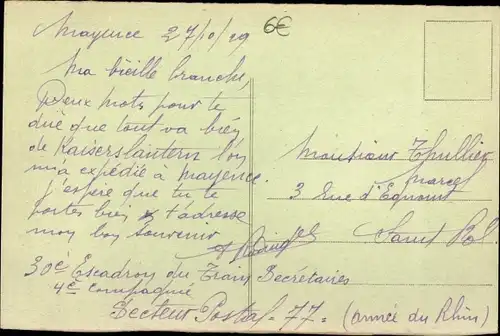 Mayence 27/10/29
6€
Ma vieille branche,
Deux mots pour te
dire que tout va bien
de Kaiserslautern l'on
m'a expédié a mayence.
j'espère que tu te
portes bien & t'adresse
mon bon souvenir
Monsieur Thuillier
Marcel
3 Rue d'Egmont
Saint Pol
30e Escadron du Train Secrétaires
4e Compagnie
Secteur Postal - 77 - (Armée du Rhin)